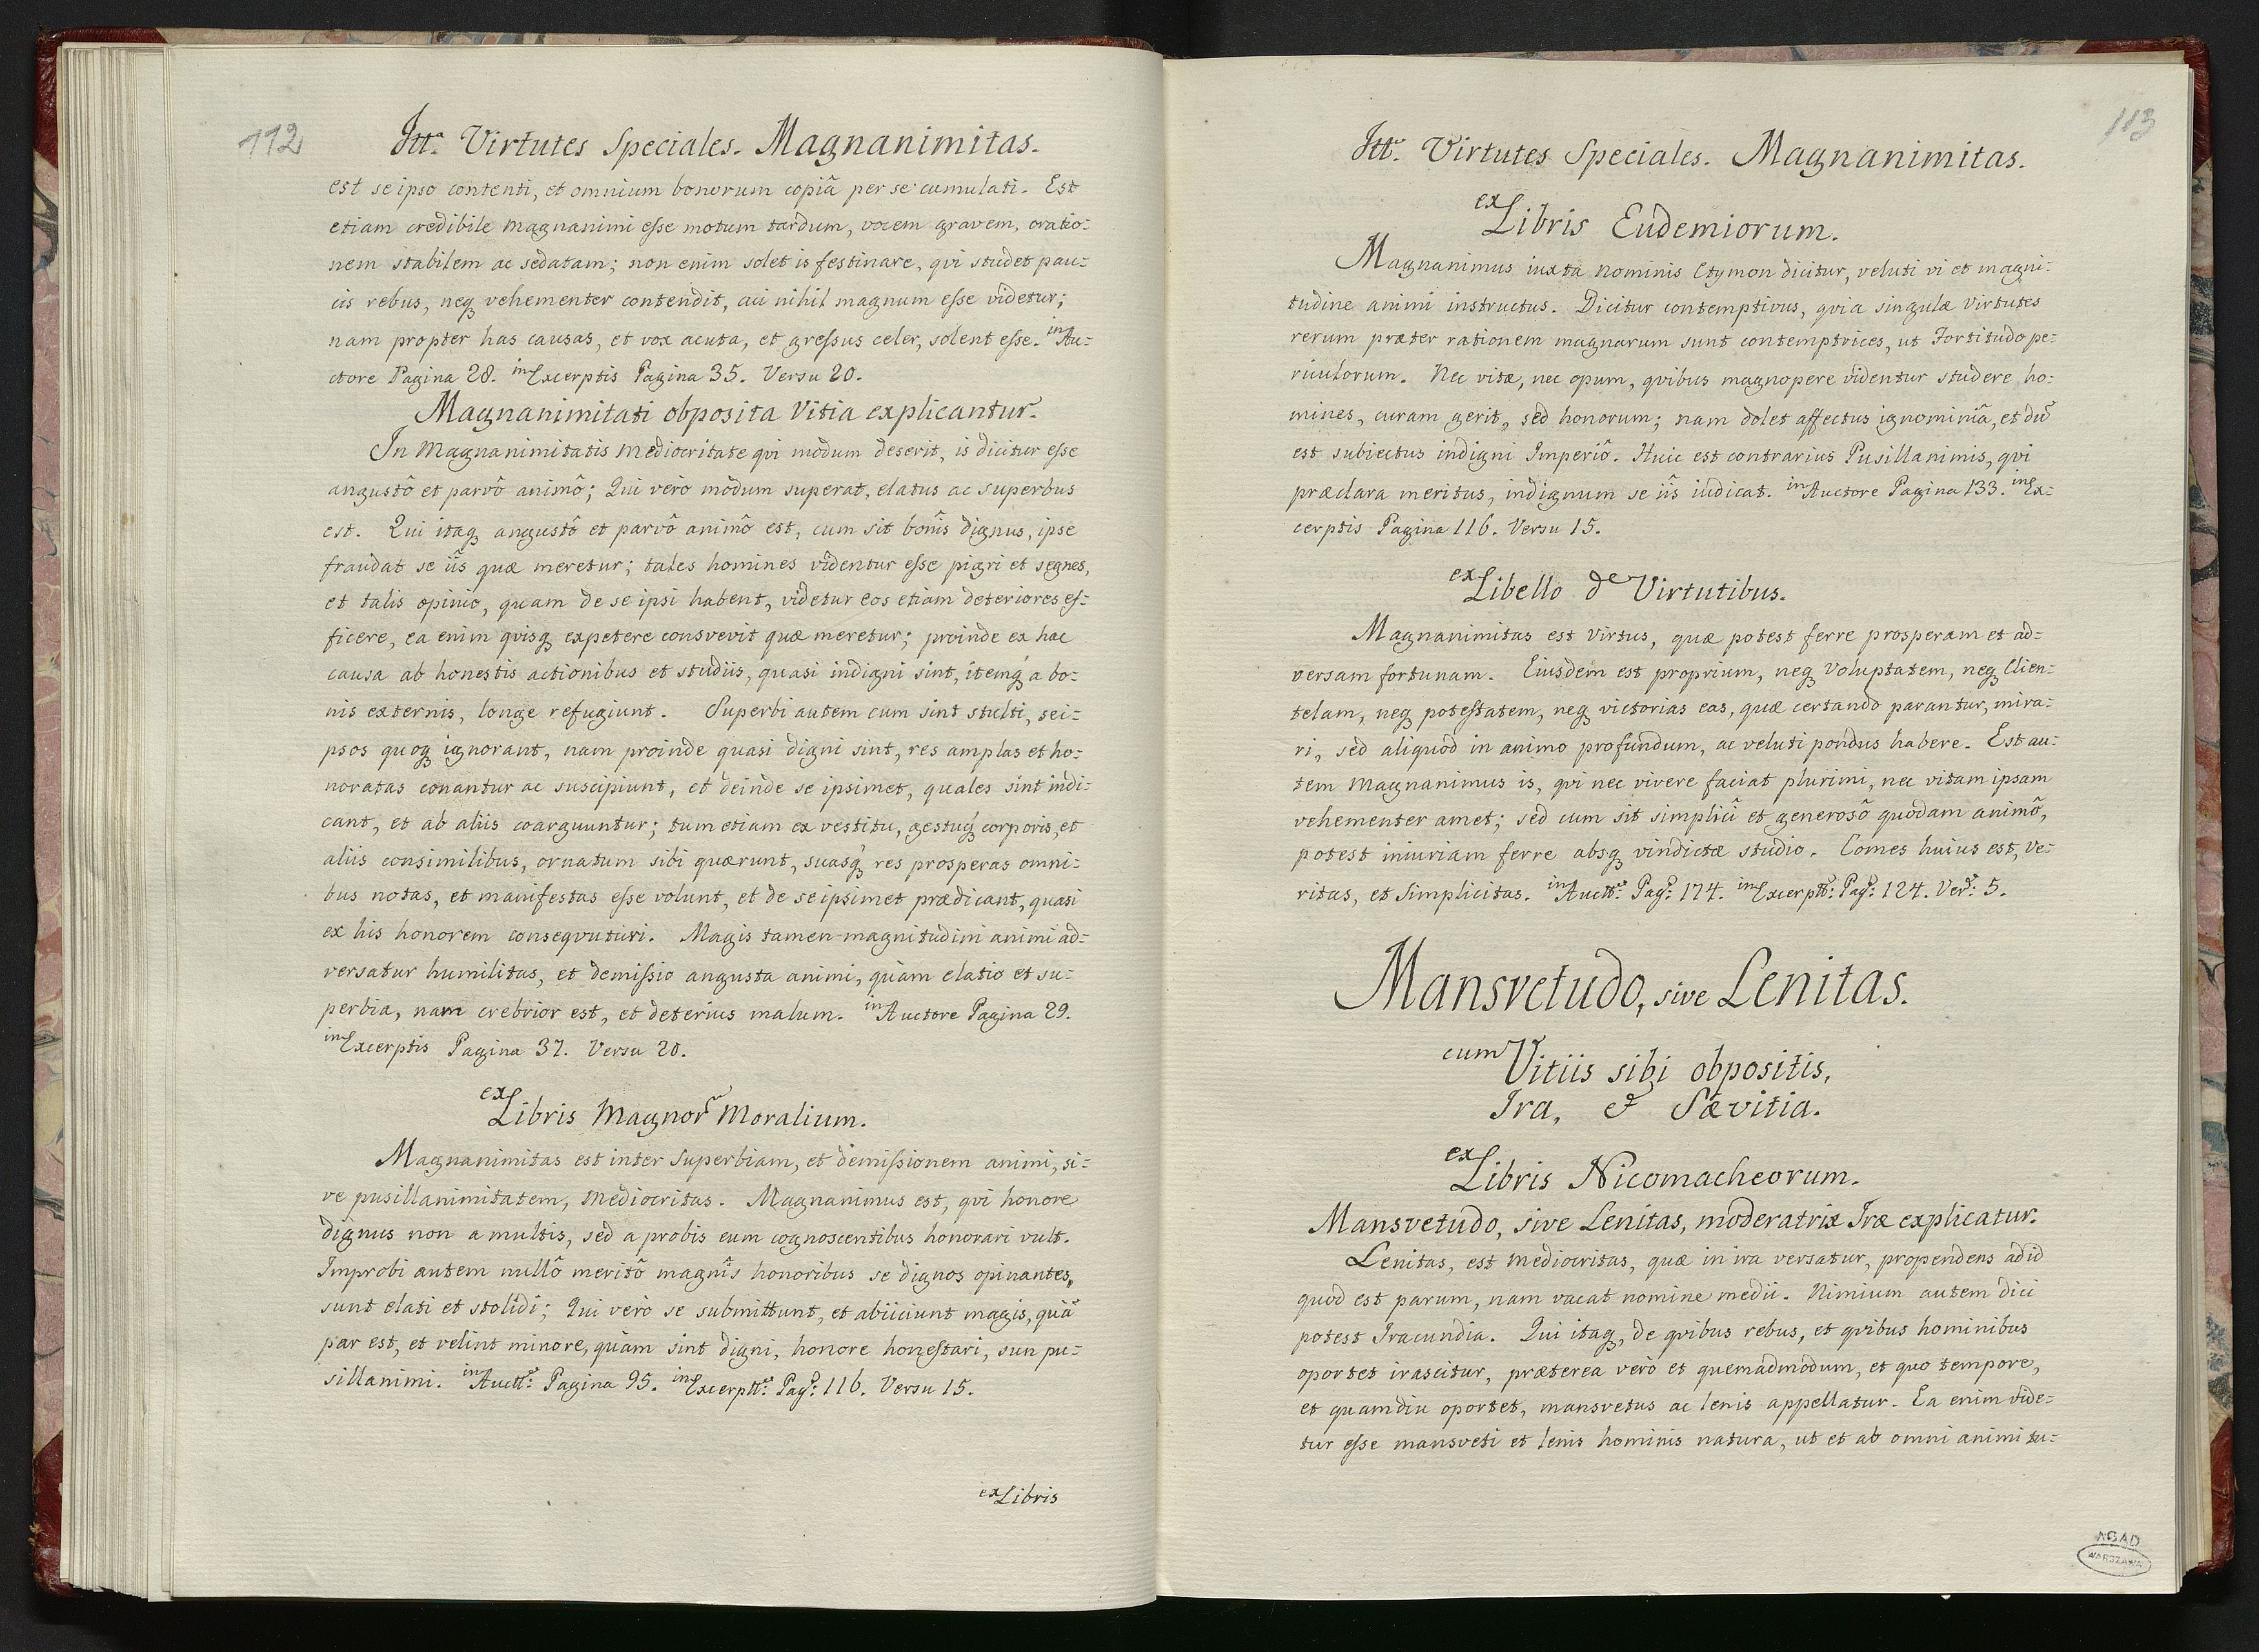 112
Itt. Virtutes Speciales. Magnanimitas.
est se ipso contenti, et omnium bonorum copiâ per se cumulati. Est
etiam credibile Magnanimi esse motum tardum, vocem gravem, oratio=
nem stabilem ac sedatam; non enim solet is festinare, qvi studet pau=
cis rebus, neq vehementer contendit, cui nihil magnum esse videtur;
nam propter has causas, et vox acuta, et gressus celer, solent esse. in Au=
ctore Pagina 28. in Excerptis Pagina 35. Versu 20.
Magnanimitati obposita Vitia explicantur.
In Magnanimitatis Mediocritate qvi modum deserit, is dicitur esse
angustô et parvô animô; Qui verò modum superat, elatus ac superbus
est. Qui itaq angustô et parvô animô est, cum sit bonîs dignus, ipse
fraudat se iîs quæ meretur; tales homines videntur esse pigri et segnes,
et talis opinio, quam de se ipsi habent, videtur eos etiam deteriores ef=
ficere, ea enim qvisq expetere consvevit quæ meretur; proinde ex hac
causa ab honestis actionibus et studiis, quasi indigni sint, itemq a bo=
nis externis, longe refugiunt. Superbi autem cum sint stulti, sei=
psos quoq ignorant, nam proinde quasi digni sint, res amplas et ho=
noratas conantur ac suscipiunt, et deinde se ipsimet, quales sint indi=
cant, et ab aliis coarguuntur; tum etiam ex vestitu, gestuq corporis, et
aliis consimilibus, ornatum sibi quærunt, suasq res prosperas omni=
bus notas, et manifestas esse volunt, et de se ipsimet prædicant, quasi
ex his honorem conseqvuturi. Magis tamen magnitudini animi ad=
versatur humilitas, et demissio angusta animi, quàm elatio et su=
perbia, nam crebrior est, et deterius malum. in Auctore Pagina 29.
in Excerptis Pagina 37. Versu 20.
ex Libris Magnor Moralium.
Magnanimitas est inter Superbiam, et demissionem animi, si=
ve pusillanimitatem, Mediocritas. Magnanimus est, qvi honore
dignus non a multis, sed a probis eum cognoscentibus honorari vult.
Improbi autem nullô meritô magnîs honoribus se dignos opinantes,
sunt elati et stolidi; Qui verò se submittunt, et abiiciunt magis, quã
par est, et velint minore, quàm sint digni, honore honestari, sun pu=
sillanimi. in Auctt: Pagina 95. in Excerptt: Pag: 116. Versu 15.
ex Libris
113
Itt. Virtutes Speciales. Magnanimitas.
ex Libris Eudemiorum.
Magnanimus iuxta nominis Etymon dicitur, veluti vi et magni=
tudine animi instructus. Dicitur contemptivus, qvia singulæ Virtutes
rerum præter rationem magnarum sunt contemptrices, ut Fortitudo pe=
riculorum. Nec vitæ, nec opum, qvibus magnopere videntur studere ho=
mines, curam gerit, sed honorum; nam dolet affectus ignominiâ, et dũ
est subiectus indigni Imperiô. Huic est contrarius Pusillanimis, qvi
præclara meritus, indignum se iîs iudicat. in Auctore Pagina 133. in Ex=
cerptis Pagina 116. Versu 15.
ex Libello de Virtutibus.
Magnanimitas est Virtus, quæ potest ferre prosperam et ad=
versam fortunam. Eiusdem est proprium, neq Voluptatem, neq Clien=
telam, neq potestatem, neq victorias eas, quæ certando parantur, mira=
ri, sed aliquod in animo profundum, ac veluti pondus habere. Est au=
tem Magnanimus is, qvi nec vivere faciat plurimi, nec vitam ipsam
vehementer amet; sed cum sit simplicî et generosô quodam animô,
potest iniuriam ferre absq vindictæ studio. Comes huius est, Ve=
ritas, et Simplicitas. in Auctt: Pag: 174. in Excerptt: Pag: 124. Ver: 5.
Mansvetudo, sive Lenitas.
cum Vitiis sibi obpositis,
Ira, & Sævitia.
ex Libris Nicomacheorum.
Mansvetudo, sive Lenitas, moderatrix Iræ explicatur.
Lenitas, est mediocritas, quæ in ira versatur, propendens ad id
quod est parum, nam vacat nomine medii. Nimium autem dici
potest Iracundia. Qui itaq, de qvibus rebus, et qvibus hominibus
oportet irascitur, præterea verò et quemadmodum, et quo tempore,
et quamdiu oportet, mansvetus ac lenis appellatur. Ea enim vide=
tur esse mansveti et lenis hominis natura, ut et ab omni animi tu=
AGAD
WARSZAWA